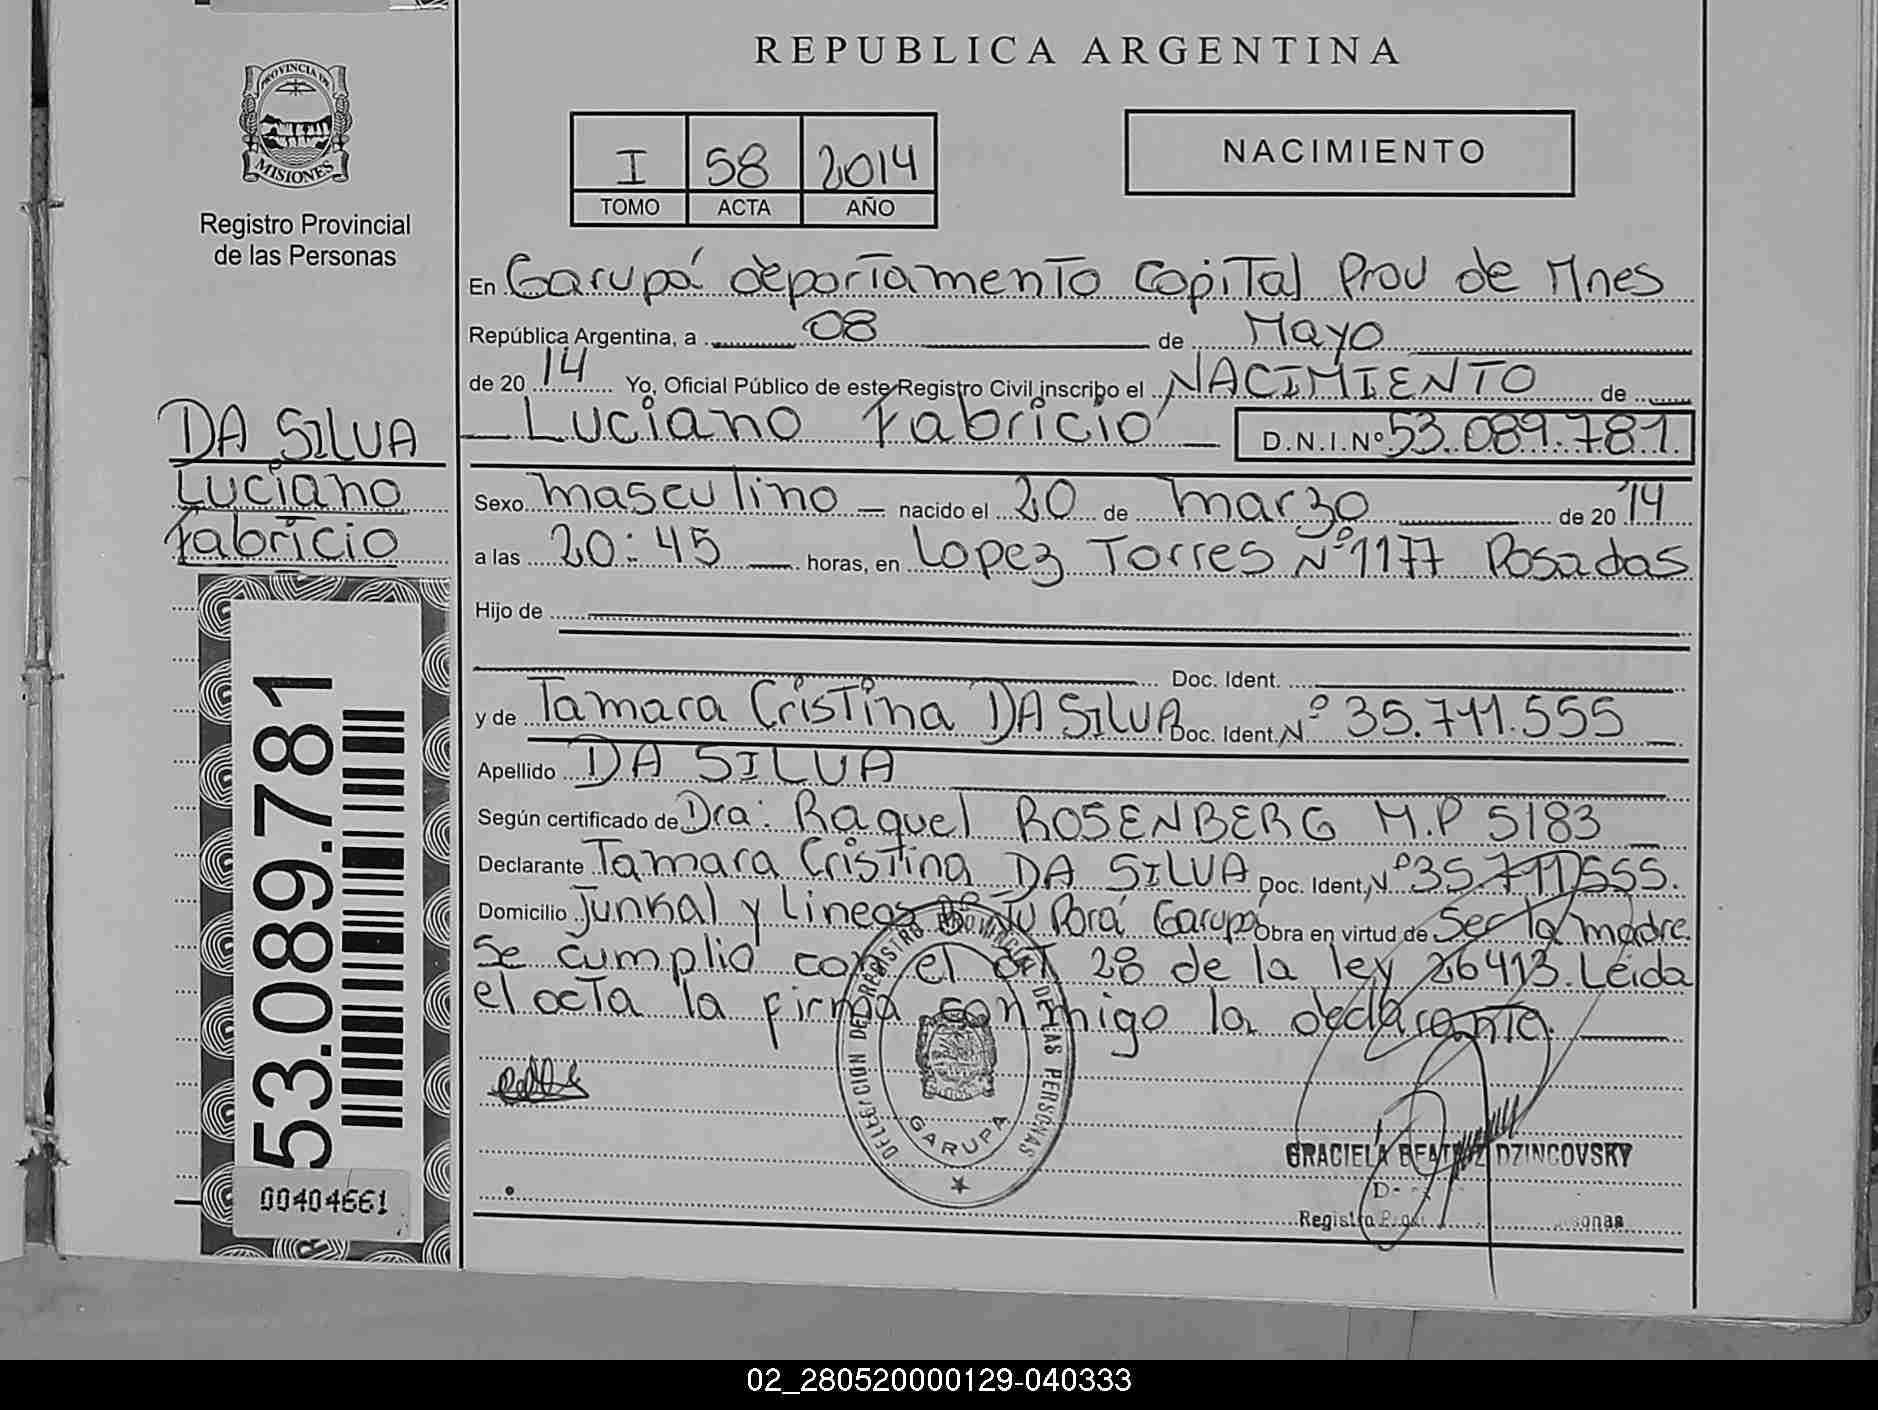 PROVINCIA DE
MISIONES
Registro Provincial
de las Personas
REPUBLICA ARGENTINA
I 58 2014
TOMO ACTA AÑO
NACIMIENTO
En Garupá departamento Capital Prov de Mnes
República Argentina, a 08 de Mayo
de 20 14 Yo, Oficial Público de este Registro Civil inscribo el NACIMIENTO de
Luciano Fabricio D.N.I.Nº 53.089.781.
DA SILVA
Luciano
Fabricio
Sexo masculino nacido el 20 de marzo de 20 14
a las 20:45 horas, en Lopez Torres Nº 1177 Posadas
Hijo de
Doc. Ident.
y de Tamara Cristina DA SILVA Doc. Ident. Nº 35.711.555
Apellido DA SILVA
Según certificado de Dra: Raquel ROSENBERG M.P 5183
Declarante Tamara Cristina DA SILVA Doc. Ident. Nº 35.711.555.
Domicilio Junkal y Lineas Bº Ñu Porá Garupá Obra en virtud de Ser la madre
Se cumplió con el art 28 de la ley 26413. Leida
el acta la firma conmigo la declarante.
53.089.781
00404661
DELEGACION DEL REGISTRO PROVINCIAL DE LAS PERSONAS
GARUPA
GRACIELA BEATRIZ DZINCOVSKY
Registro
02_280520000129-040333